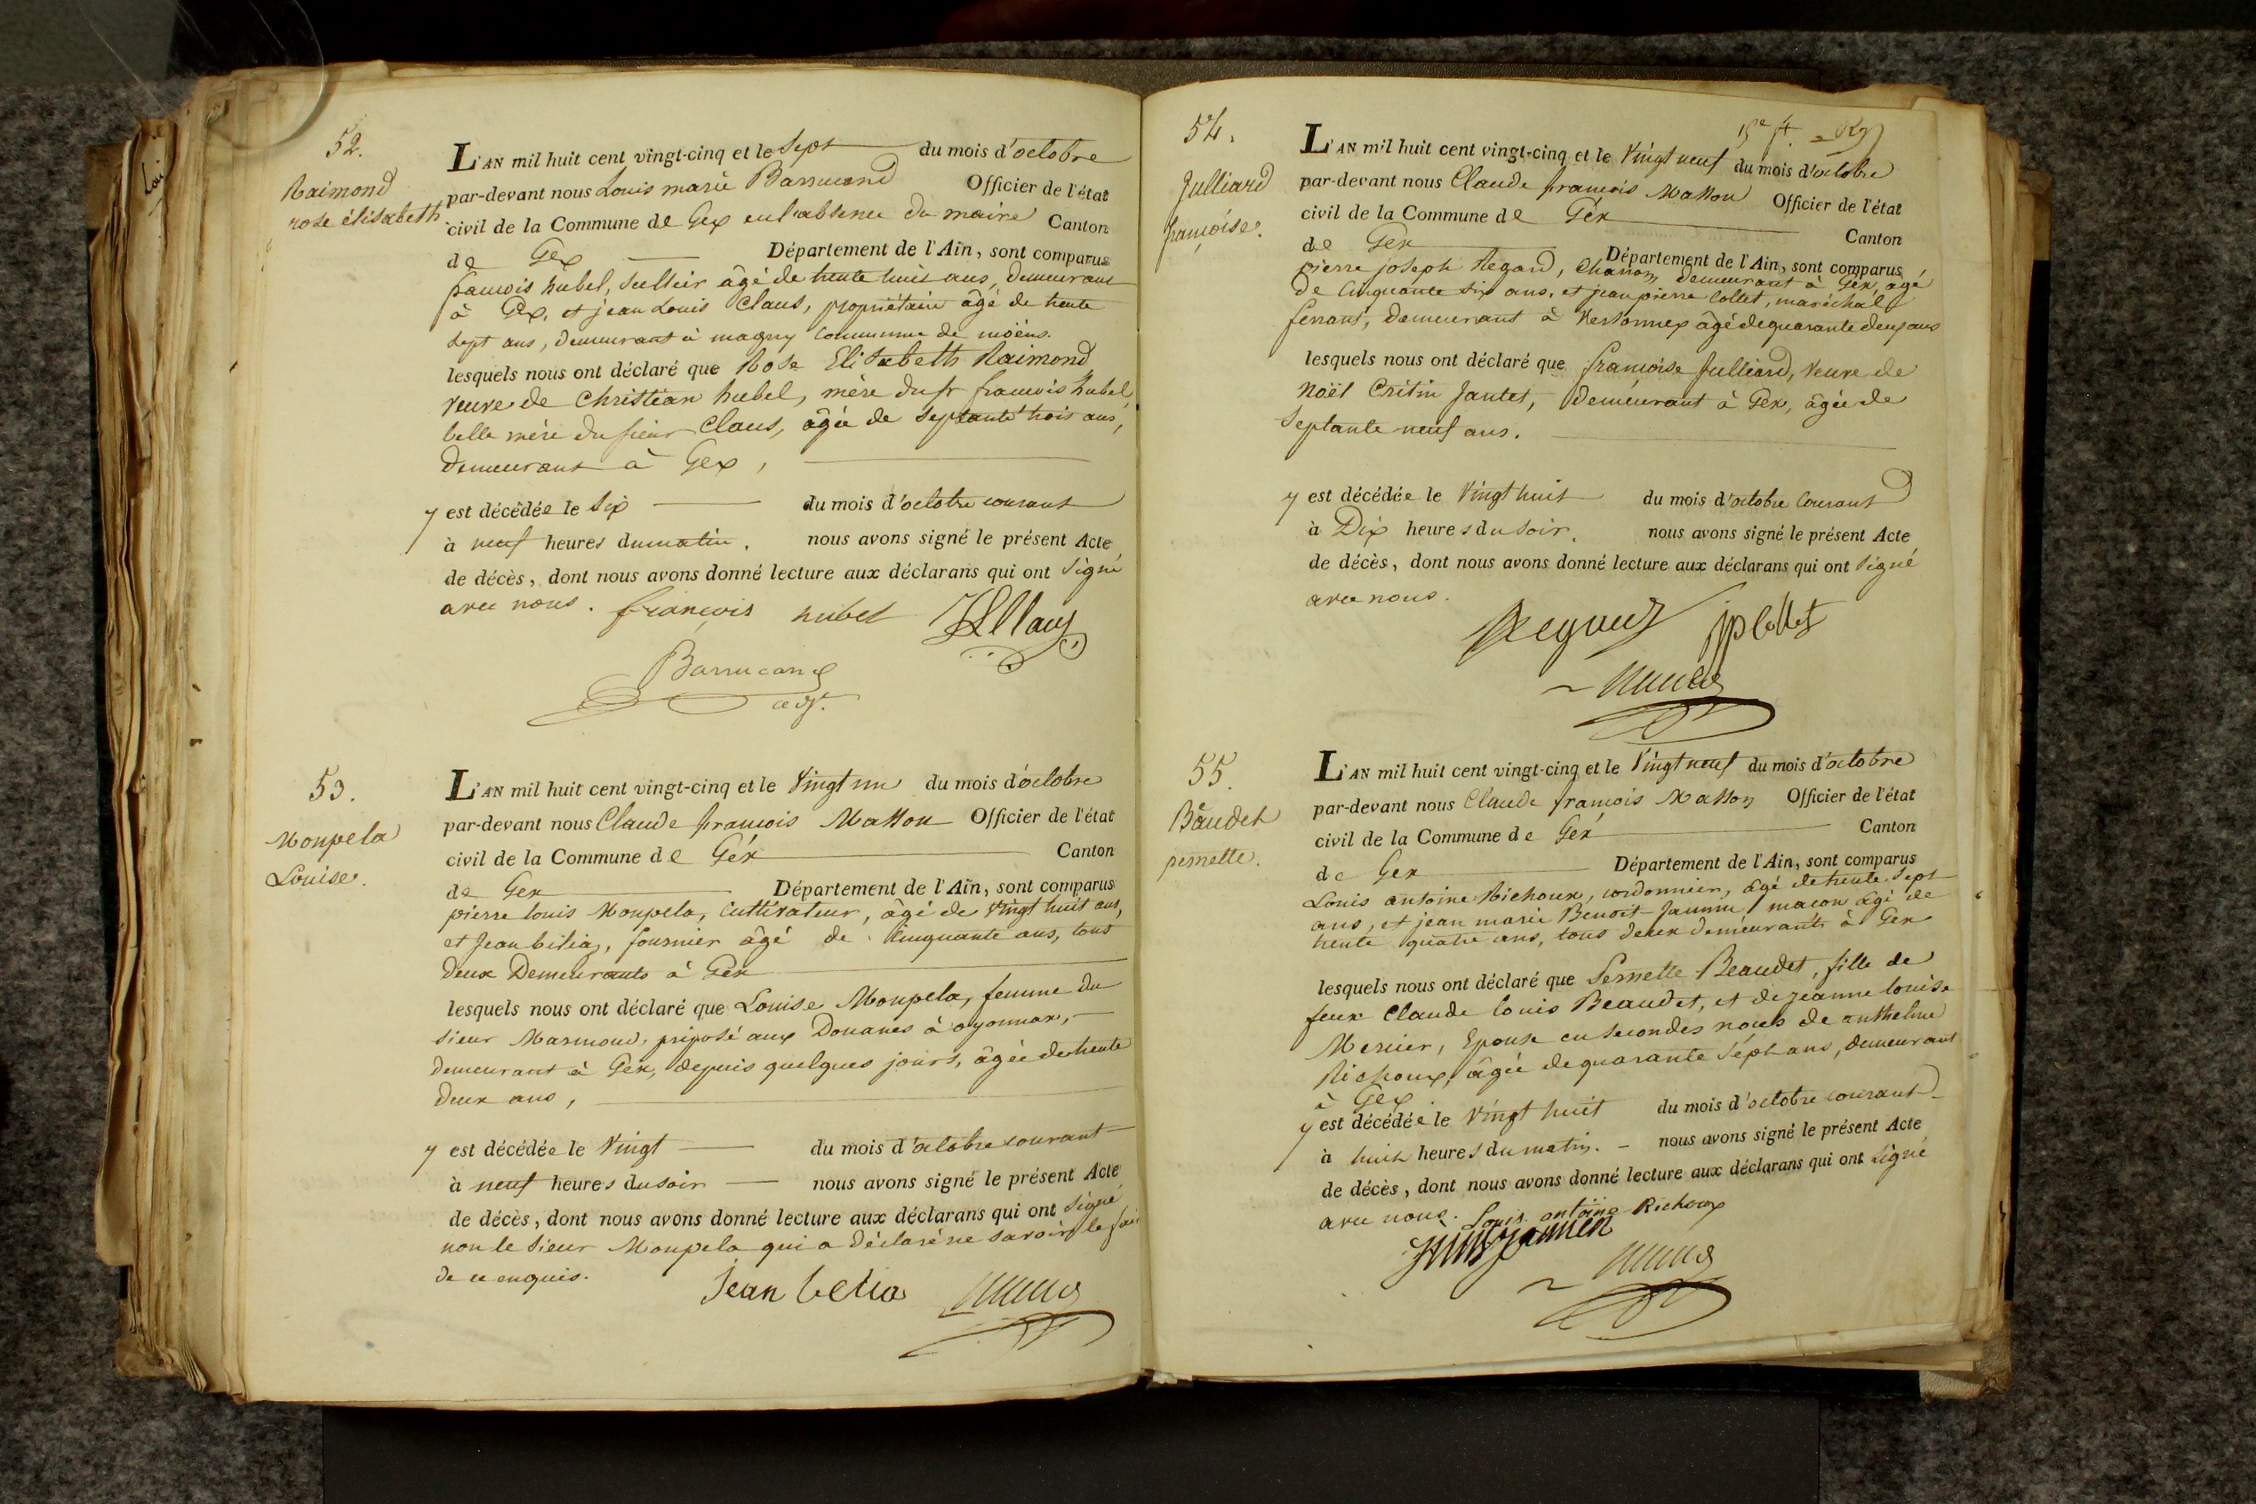 52.
Raimond
rose élisabeth
L'AN mil huit cent vingt-cinq et le sept du mois d'octobre
par-devant nous Louis marie Barrucand Officier de l'état
civil de la Commune de Gex en l'absence du maire Canton
de Gex Département de l'Ain, sont comparus
françois hubel, sellier âgé de trente huit ans, demeurant
à Gex, et jean Louis Claus, propriétaire âgé de trente
sept ans, demeurant à magny Commune de
lesquels nous ont déclaré que Rose Elisabeth Raimond
veuve de Christian hubel, mère du sr françois hubel,
belle mère du sieur Claus, âgée de septante trois ans,
demeurant à Gex,
y est décédée le six du mois d'octobre courant
à neuf heures du matin. nous avons signé le présent Acte
de décès, dont nous avons donné lecture aux déclarans qui ont signé
avec nous. françois hubel
Barrucand
adjt.
53.
Monpela
Louise.
L'AN mil huit cent vingt-cinq et le Vingt un du mois d'octobre
par-devant nous Claude françois Masson Officier de l'état
civil de la Commune de Géx Canton
de Gex Département de l'Ain, sont comparus
pierre louis Monpela, Cultivateur, âgé de vingt huit ans,
et Jean fournier âgé de Cinquante ans, tous
deux Demeurants à Gex
lesquels nous ont déclaré que Louise Monpela, femme du
sieur Marmoud, préposé aux Douanes à oyonnax,
demeurant à Gex, depuis quelques jours, âgée de trente
deux ans,
y est décédée le Vingt du mois d'octobre courant
à neuf heures du soir nous avons signé le présent Acte
de décès, dont nous avons donné lecture aux déclarans qui ont signé
non le sieur Monpela qui a déclaré ne savoir le faire
de ce enquis.
Jean
54.
Julliard
françoise.
L'AN mil huit cent vingt-cinq et le Vingt neuf du mois d'octobre
par-devant nous Claude françois Masson Officier de l'état
civil de la Commune de Géx Canton
de Gex Département de l'Ain, sont comparus
pierre joseph Regard, Charron, demeurant à Gex, âgé
De Cinquante six ans, et jean pierre Collet, maréchal
ferrant, demeurant à Versonnex âgé de quarante deux ans
lesquels nous ont déclaré que françoise Julliard, veuve de
Noël Critin Jantet, demeurant à Gex, âgée de
Septante neuf ans.
y est décédée le Vingt huit du mois d'octobre Courant
à Dix heures du soir. nous avons signé le présent Acte
de décès, dont nous avons donné lecture aux déclarans qui ont signé
avec nous.
jp Collet
55.
Baudet
pernette.
L'AN mil huit cent vingt-cinq et le Vingt neuf du mois d'octobre
par-devant nous Claude françois Masson Officier de l'état
civil de la Commune de Géx Canton
de Gex Département de l'Ain, sont comparus
Louis antoine Richoux, cordonnier, âgé de trente sept
ans, et jean marie Benoit-Jannin, macon âgé de
trente quatre ans, tous deux demeurants à Gex
lesquels nous ont déclaré que Pernette Beaudet, fille de
feux Claude louis Beaudet, et de jeanne louise
Mercier, Epouse en secondes noces de anthelme
Richoux, âgée de quarante sept ans, demeurant
à Gex
y est décédée le Vingt huit du mois d'octobre courant
à huit heures du matin. nous avons signé le présent Acte
de décès, dont nous avons donné lecture aux déclarans qui ont signé
avec nous. Louis antoine Richoux